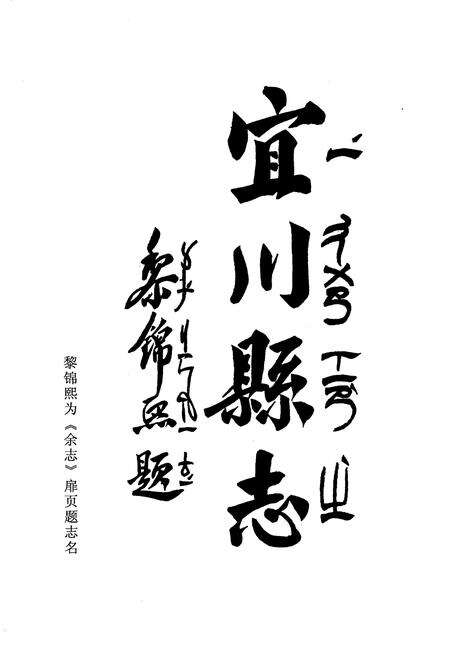 宜川縣志
黎錦熙題
黎锦熙为《余志》扉页题志名